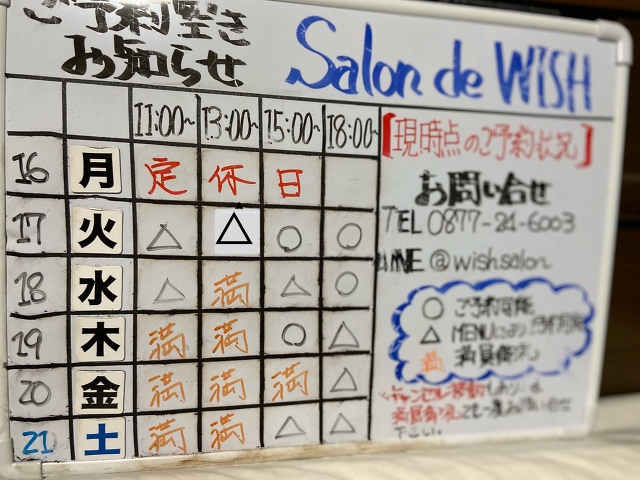 ご予約空き
お知らせ
Salon de WISH
11:00~ 13:00~ 15:00~ 18:00~
16 月 定 休 日
17 火 △ △ ○ ○
18 水 △ 満 △ ○
19 木 満 満 ○ △
20 金 満 満 満 △
21 土 満 満 △ △
[現時点のご予約状況]
お問い合せ
TEL 0877-24-6003
LINE @wishsalon
○ ご予約可能
△ MENUにより予約可能
満 満員御礼